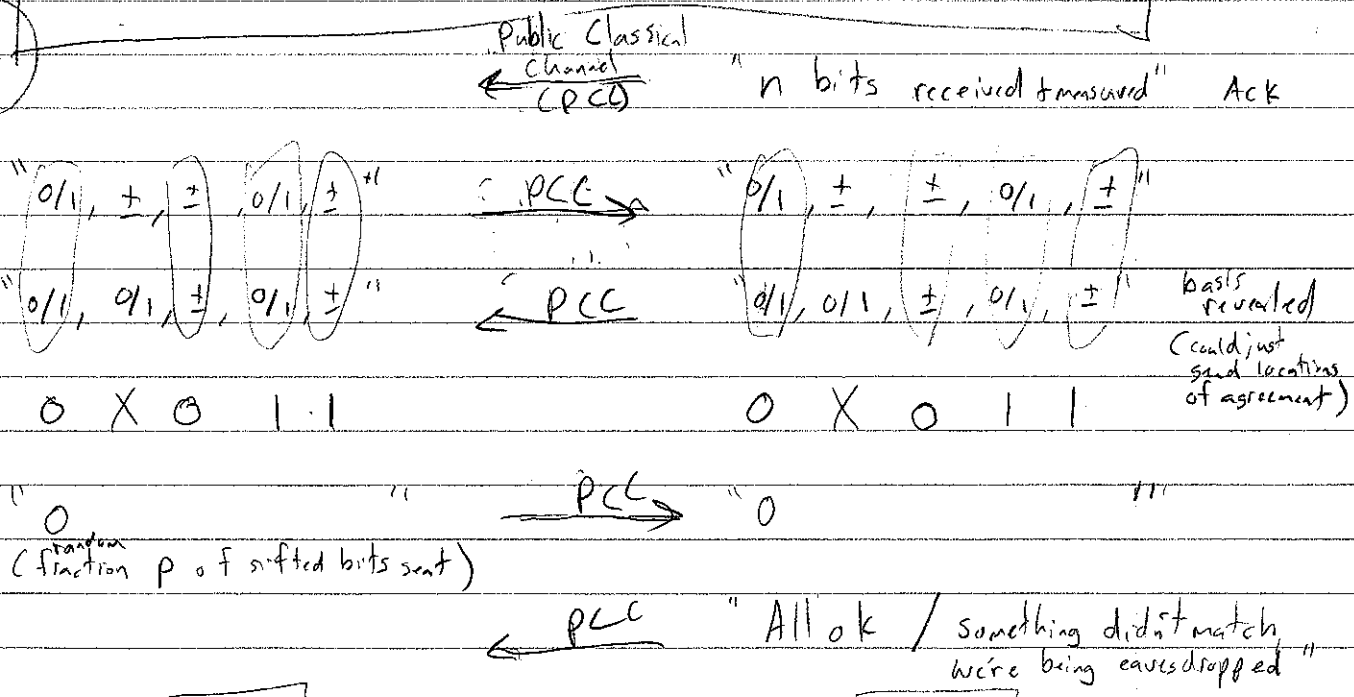 Public Classical
Channel
(PCC)
"n bits received + measured" Ack
"0/1, ±, ±, 0/1, ±" PCC "0/1, ±, ±, 0/1, ±"
"0/1, 0/1, ±, 0/1, ±" PCC "0/1, 0/1, ±, 0/1, ±" basis
revealed
(could just
send locations
of agreement)
0 X 0 1 1 0 X 0 1 1
"0 " PCC "0 "
random
(fraction p of sifted bits sent)
PCC "All ok / something didn't match,
we're being eavesdropped"